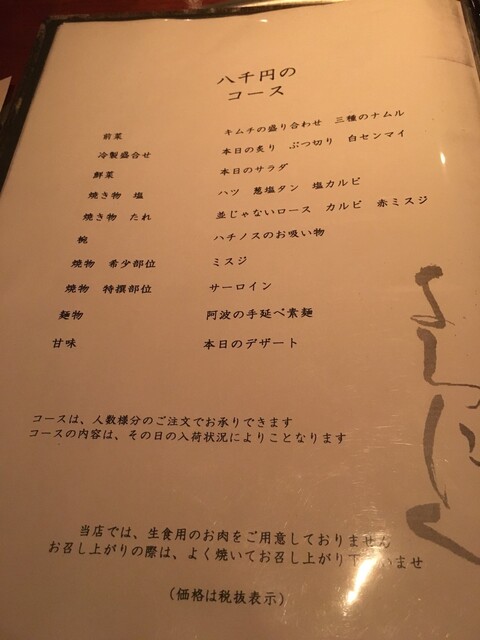 八千円の
コース
前菜 キムチの盛り合わせ 三種のナムル
冷製盛合せ 本日の炙り ぶつ切り 白センマイ
鮮菜 本日のサラダ
焼き物 塩 ハツ 葱塩タン 塩カルビ
焼き物 たれ 並じゃないロース カルビ 赤ミスジ
椀 ハチノスのお吸い物
焼物 希少部位 ミスジ
焼物 特撰部位 サーロイン
麺物 阿波の手延べ素麺
甘味 本日のデザート
コースは、人数様分のご注文でお承りできます
コースの内容は、その日の入荷状況によりことなります
当店では、生食用のお肉をご用意しておりません
お召し上がりの際は、よく焼いてお召し上がり下さいませ
(価格は税抜表示)
よしにく